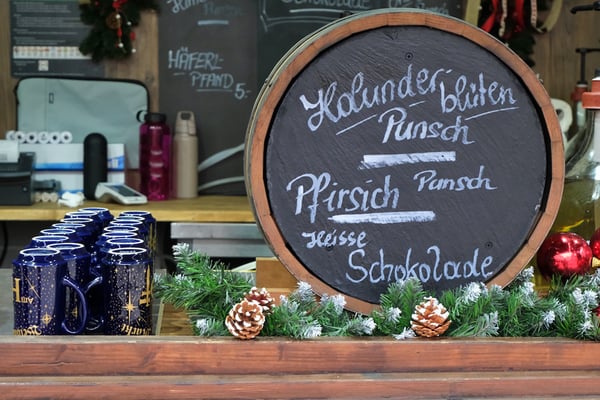 HÄFERL-
PFAND 5,-
Holunder-
blüten
Punsch
Pfirsich Punsch
Heisse
Schokolade